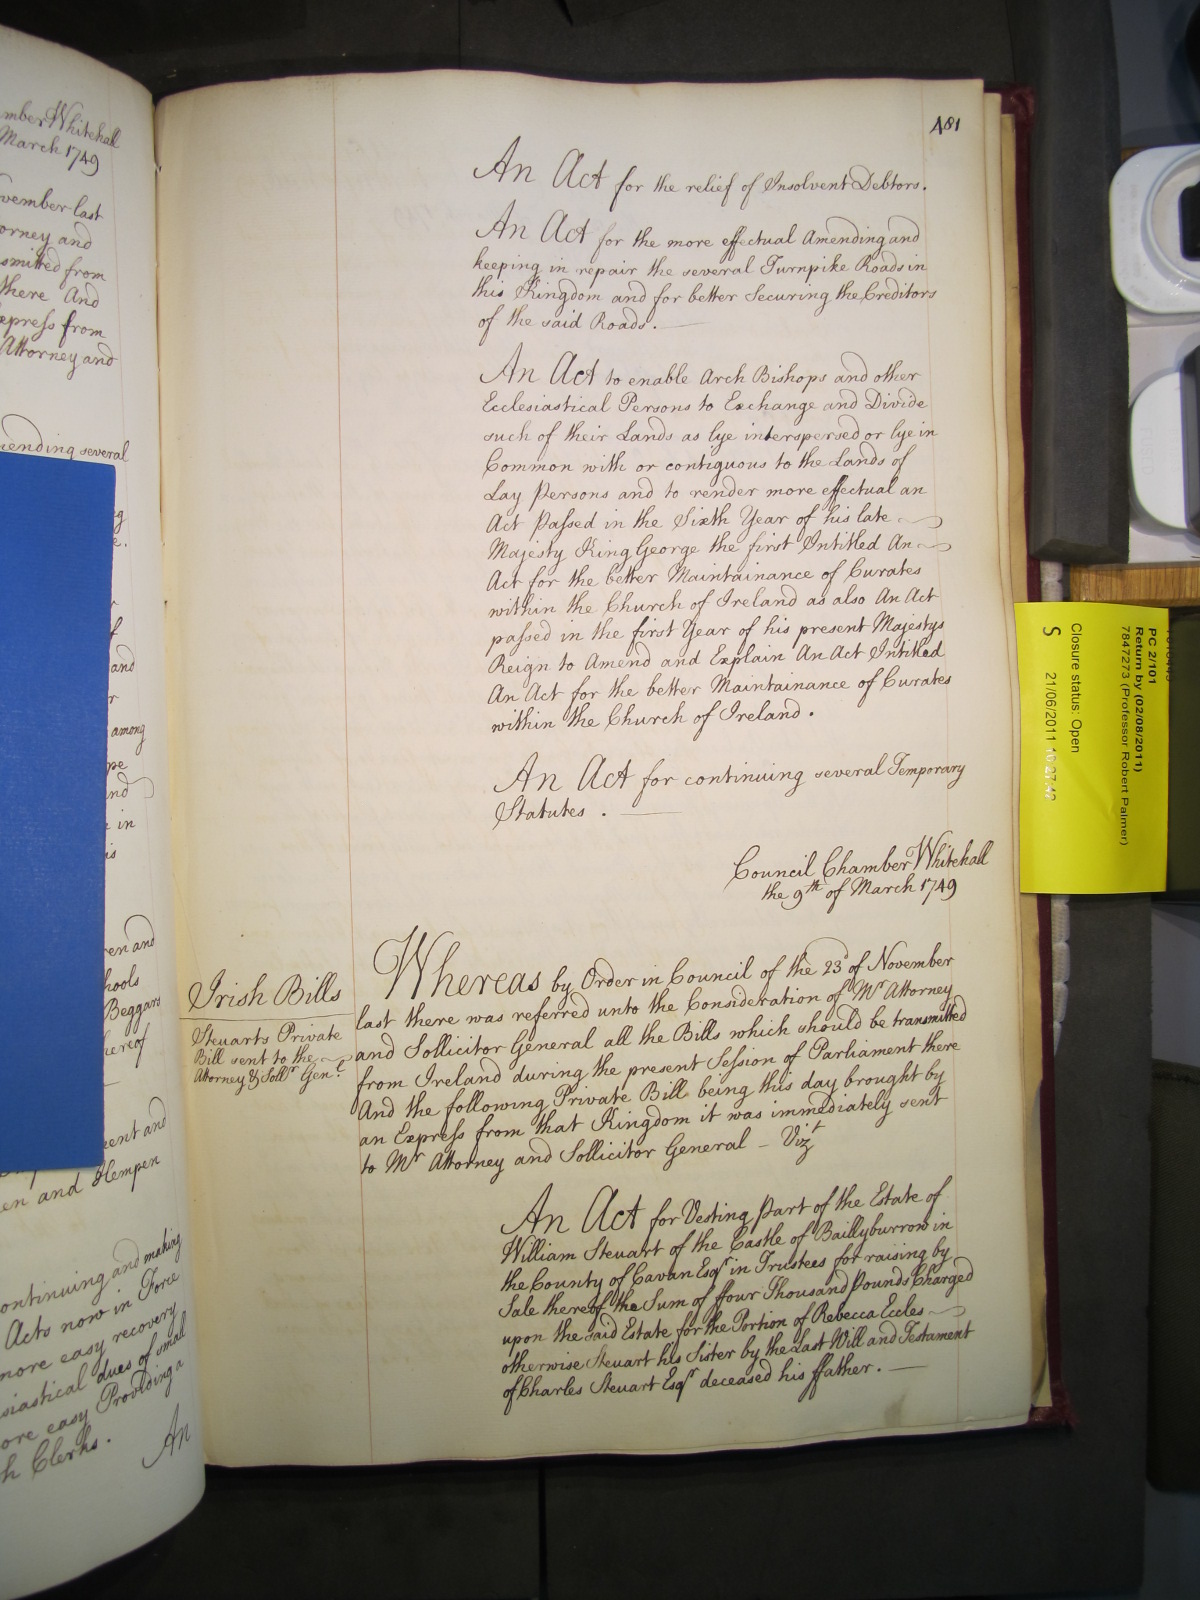 mber Whitehall
March 1749
vember last
orney and
smitted from
there And
xpress from
Attorney and
ending several
and
among
in
en and
hools
Beggars
hereof
ent and
en and Hempen
ontinuing and making
Acts now in Force
more easy recovery
siastical dues of small
ore easy Providing a
h Clerks.
An
481
An Act for the relief of Insolvent Debtors.
An Act for the more effectual Amending and
keeping in repair the several Turnpike Roads in
this Kingdom and for better Securing the Creditors
of the said Roads.
An Act to enable Arch Bishops and other
Ecclesiastical Persons to Exchange and Divide
such of their Lands as lye interspersed or lye in
Common with or contiguous to the Lands of
Lay Persons and to render more effectual an
Act Passed in the Sixth Year of his late
Majesty King George the first Intitled An
Act for the better Maintainance of Curates
within the Church of Ireland as also An Act
passed in the first Year of his present Majestys
Reign to Amend and Explain An Act Intitled
An Act for the better Maintainance of Curates
within the Church of Ireland.
An Act for continuing several Temporary
Statutes.
Council Chamber Whitehall
the 9th of March 1749
Irish Bills
Steuarts Private
Bill sent to the
Attorney & Sollr Genl
Whereas by Order in Council of the 23d of November
last there was referred unto the Consideration of Mr Attorney
and Sollicitor General all the Bills which should be transmitted
from Ireland during the present Session of Parliament there
And the following Private Bill being this day brought by
an Express from that Kingdom it was immediately sent
to Mr Attorney and Sollicitor General – Vizt
An Act for Vesting Part of the Estate of
William Steuart of the Castle of Baillyburrow in
the County of Cavan Esqr in Trustees for raising by
Sale thereof the Sum of ffour Thousand Pounds Charged
upon the said Estate for the Portion of Rebecca Eccles
otherwise Steuart his Sister by the Last Will and Testament
of Charles Steuart Esqr deceased his ffather.
PC 2/101
Return by (02/08/2011)
7847273 (Professor Robert Palmer)
Closure status: Open
S 21/06/2011 16:27:42